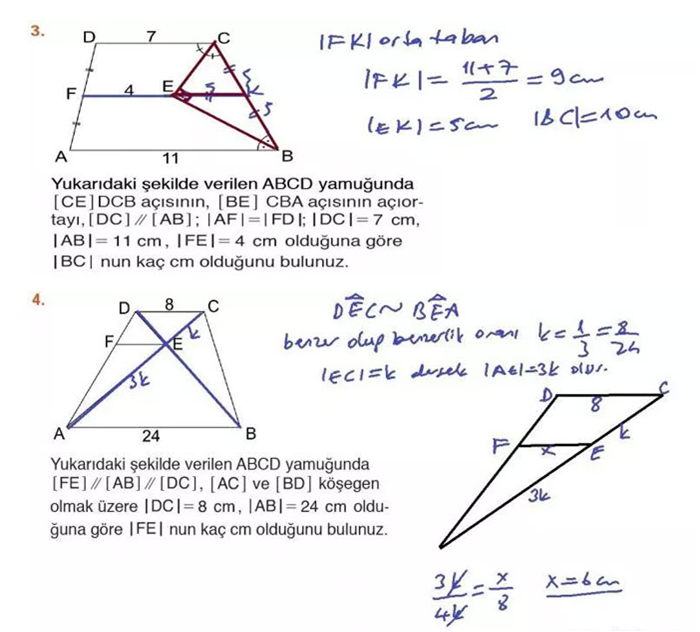 3.
D 7 C
F 4 E 5 K 5
5
A 11 B
|FK| orta taban
|FK| = 11+7 / 2 = 9 cm
|EK| = 5 cm |BC| = 10 cm
Yukarıdaki şekilde verilen ABCD yamuğunda
[CE] DCB açısının, [BE] CBA açısının açıor-
tayı, [DC] // [AB]; |AF|=|FD|; |DC|= 7 cm,
|AB|= 11 cm, |FE|= 4 cm olduğuna göre
|BC| nun kaç cm olduğunu bulunuz.
4.
D 8 C
F E k
3k
A 24 B
DÊC ~ BÊA
benzer olup benzerlik oranı k = 1/3 = 8/24
|EC|=k dersek |AE|=3k olur.
D 8 C
F x E k
3k
3k/4k = x/8 x=6 cm
Yukarıdaki şekilde verilen ABCD yamuğunda
[FE] // [AB] // [DC], [AC] ve [BD] köşegen
olmak üzere |DC|= 8 cm, |AB|= 24 cm oldu-
ğuna göre |FE| nun kaç cm olduğunu bulunuz.